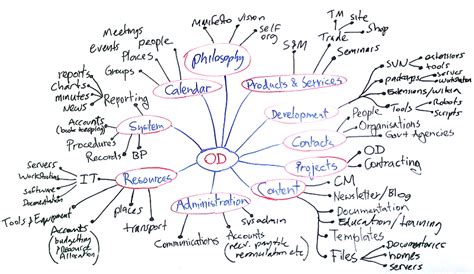 Meetings
events
people
Places
Groups
Calendar
manifesto
vision
self
org
Philosophy
TM
site
Trade
Shop
Seminars
Products & Services
SVN
extensions
tools
packages
server
workstation
Extensions/Wikia
Tools
Robots
Scripts
Development
People
Organisations
Gov't Agencies
Contacts
OD
Contracting
Projects
Content
CM
Newsletter/Blog
Documentation
Education/training
Templates
Files
Documentation
homes
servers
reports
charts
minutes
news
Reporting
Accounts
(book keeping)
Procedures
Records
BP
System
OD
Servers
Workstations
software
Documentation
IT
Resources
Tools & Equipment
Accounts
(budgetting
resource
Allocation)
places
transport
Administration
Communications
sysadmin
Accounts